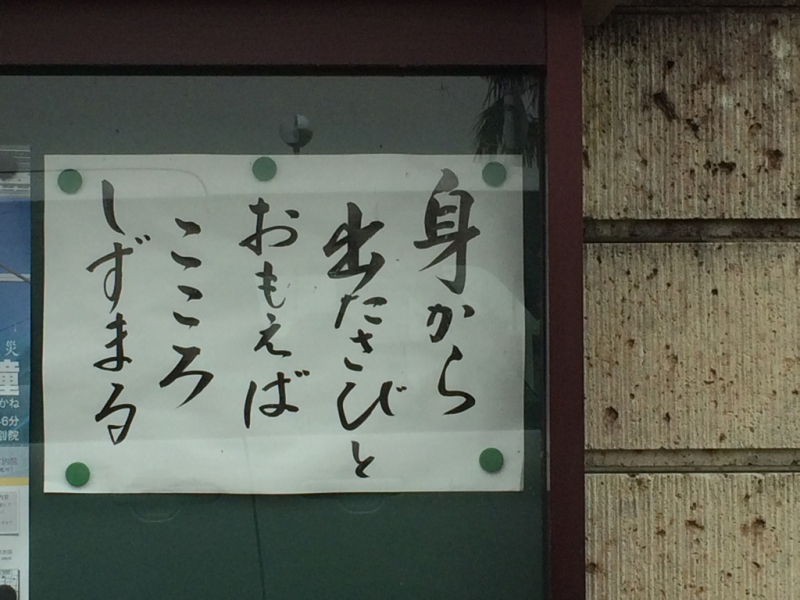 身から
出たさびと
おもえば
こころ
しずまる
災
鐘
かね
6分
別院